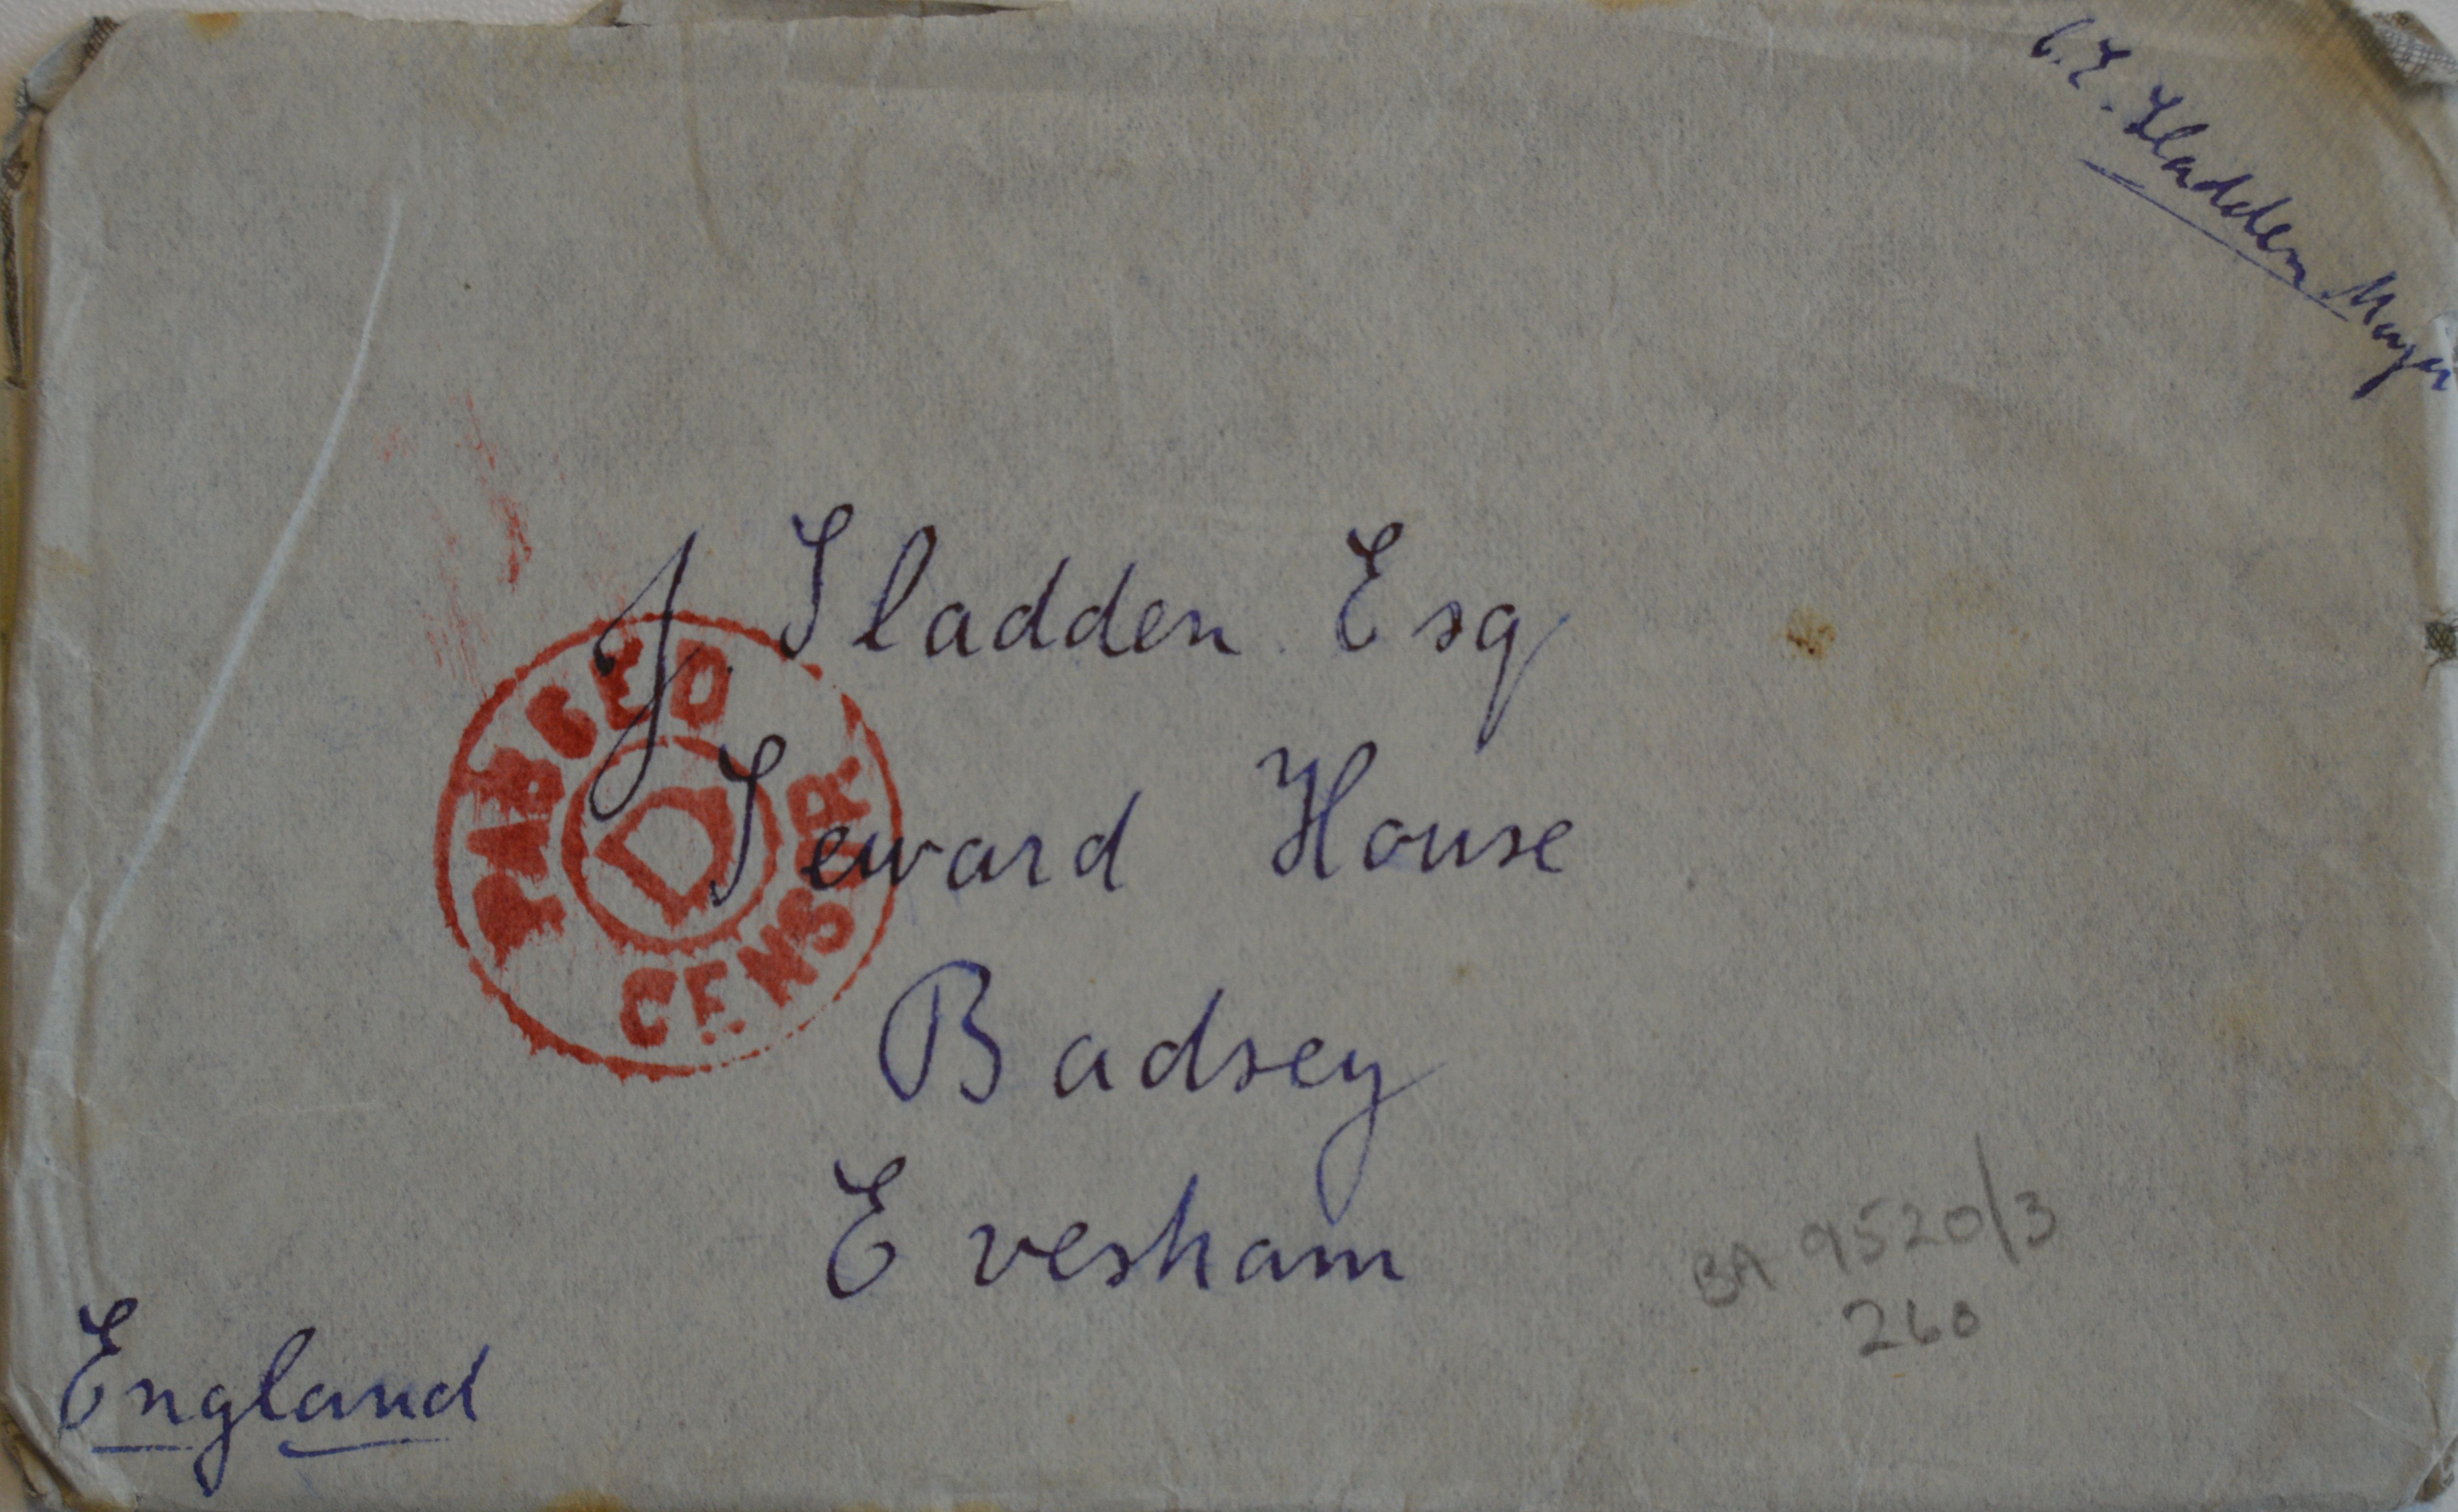 Sladden Major
J. Sladden Esq
Seward House
Badsey
Evesham
England
PASSED
D
CENSOR
BA 9520/3
260